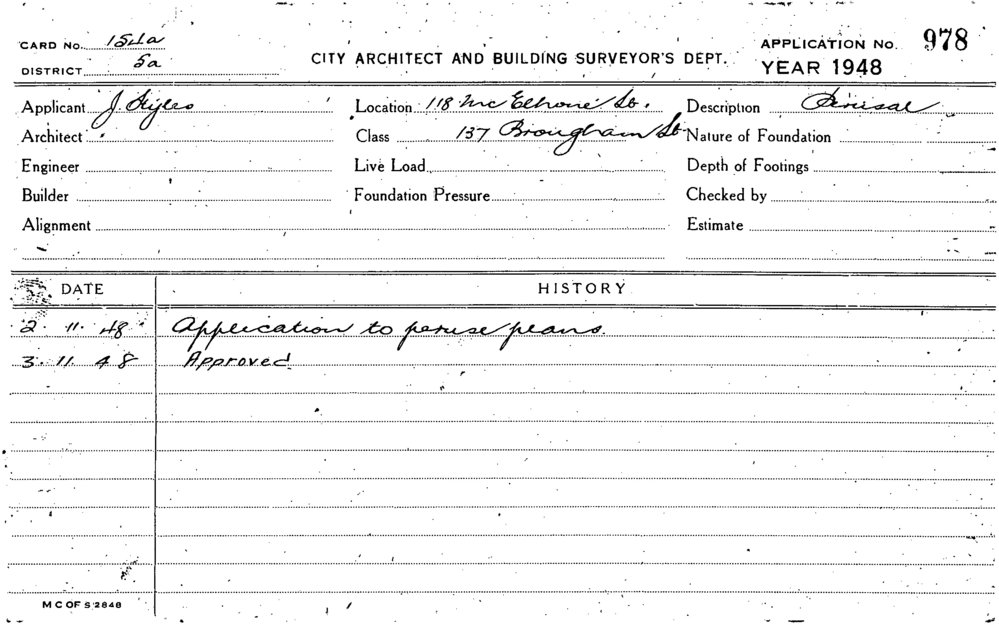 CARD No. 154a
DISTRICT 5a
CITY ARCHITECT AND BUILDING SURVEYOR'S DEPT.
APPLICATION No. 978
YEAR 1948
Applicant J.
Location 118 McElhone St. Description Perusal
Architect
Class 137 Brougham St Nature of Foundation
Engineer Live Load Depth of Footings
Builder Foundation Pressure Checked by
Alignment Estimate
DATE HISTORY
2. 11. 48 Application to peruse plans.
3. 11. 48 Approved
M C OF S 2848